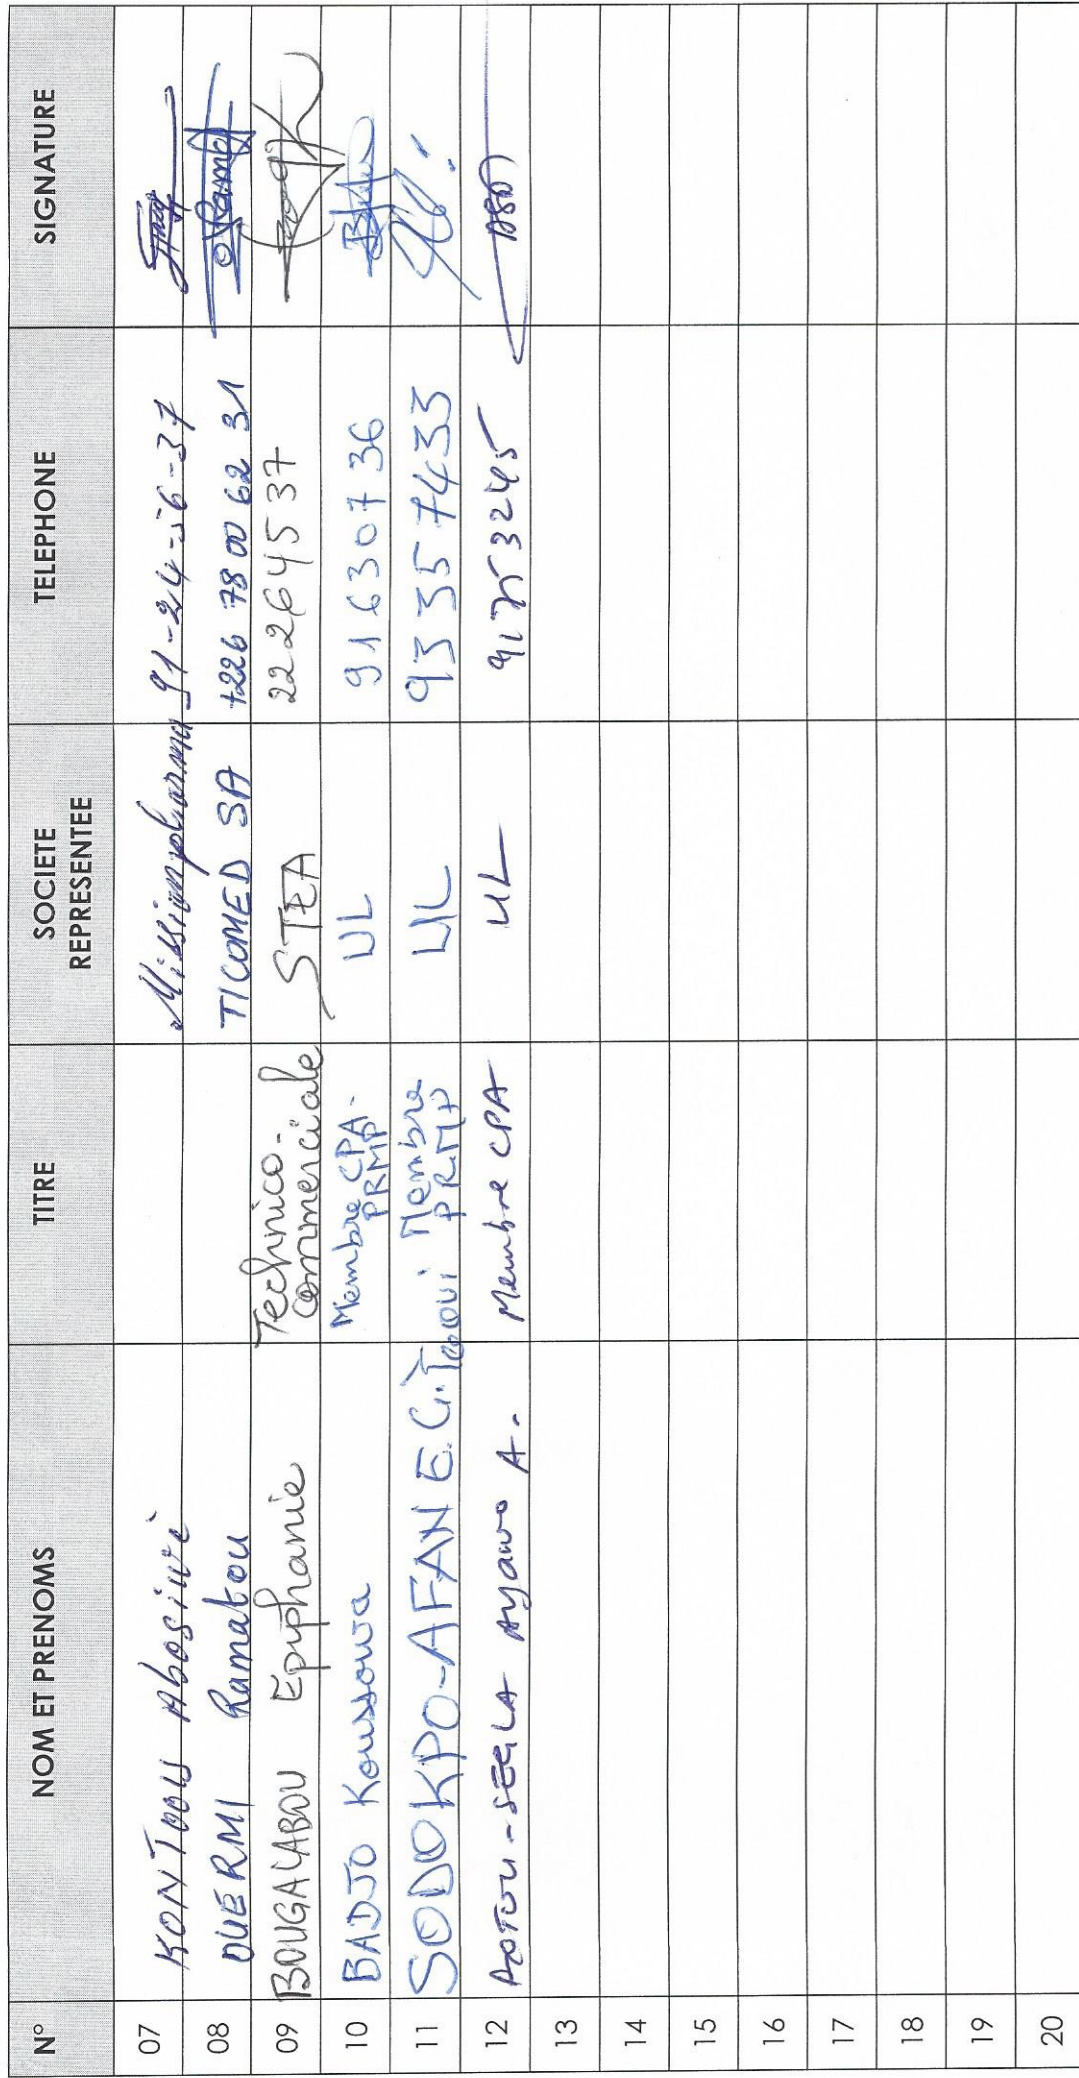 N° NOM ET PRENOMS TITRE SOCIETE REPRESENTEE TELEPHONE SIGNATURE
07 KONTOOU Abosiwè Missionpharma 91-24-56-37
08 OUERMI Ramatou TICOMED SA +226 78 00 62 31
09 BOUGALABOU Epiphanie Technico-commerciale STEA 22264537
10 BADJO Koussowa Membre CPA-PRMP UL 91630736
11 SODOKPO-AFAN E. G. Membre PRMP UL 93357433
12 Membre CPA UL
13
14
15
16
17
18
19
20